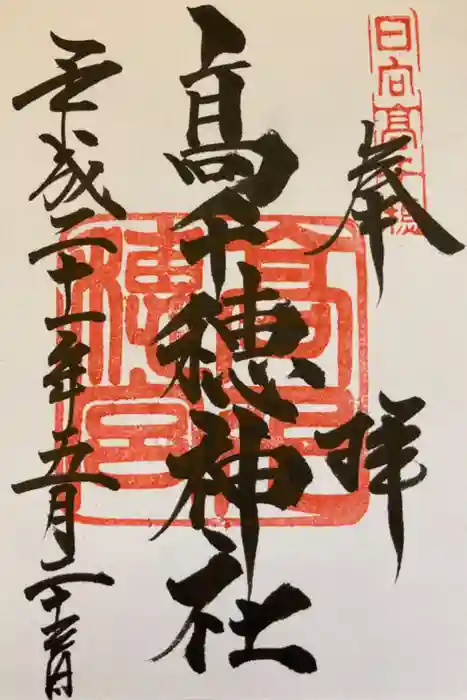 日向髙千穂
奉拝
髙千穂神社
髙千穂宮
平成二十一年五月二十日